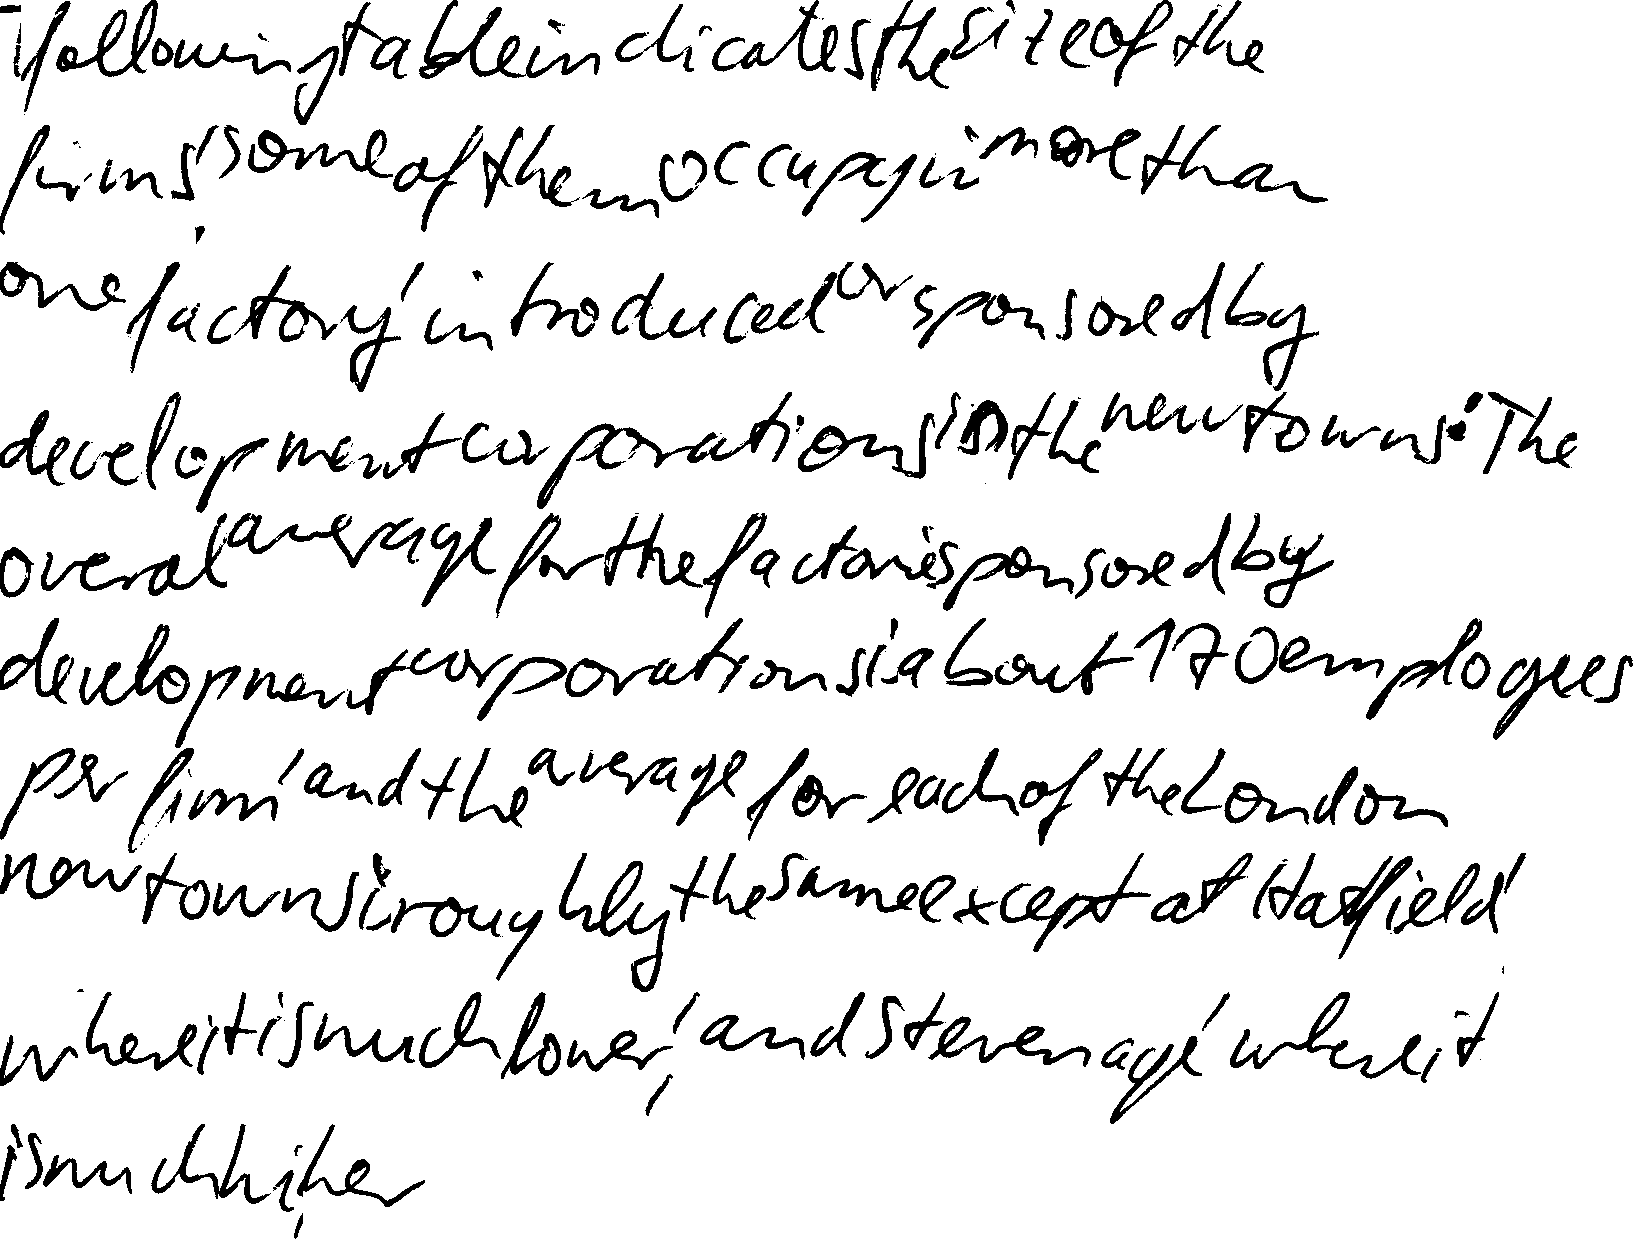 following table indicates the size of the
firms' some of them occupyin more than
one factory' introduced or sponsored by
development corporations in the new towns: The
overal average for the factories ponsored by
development corporations is about 170 employees
per firm' and the average for each of the London
new towns is roughly the same except at Hatfield'
where it is much lower,' and Stevenage' where it
is much higher